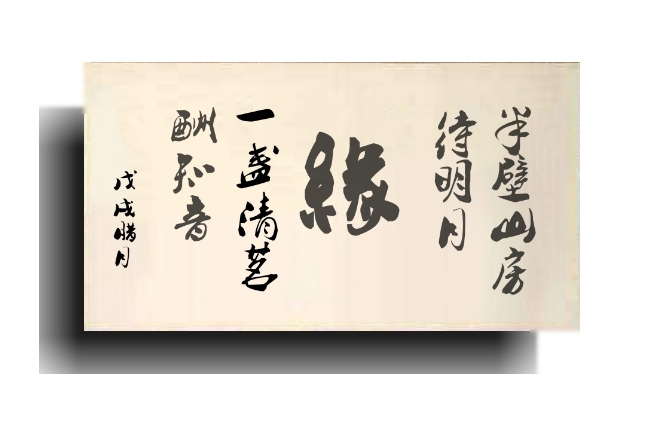 半壁山房
待明月
緣
一盏清茗
酬知音
戊戌腊月